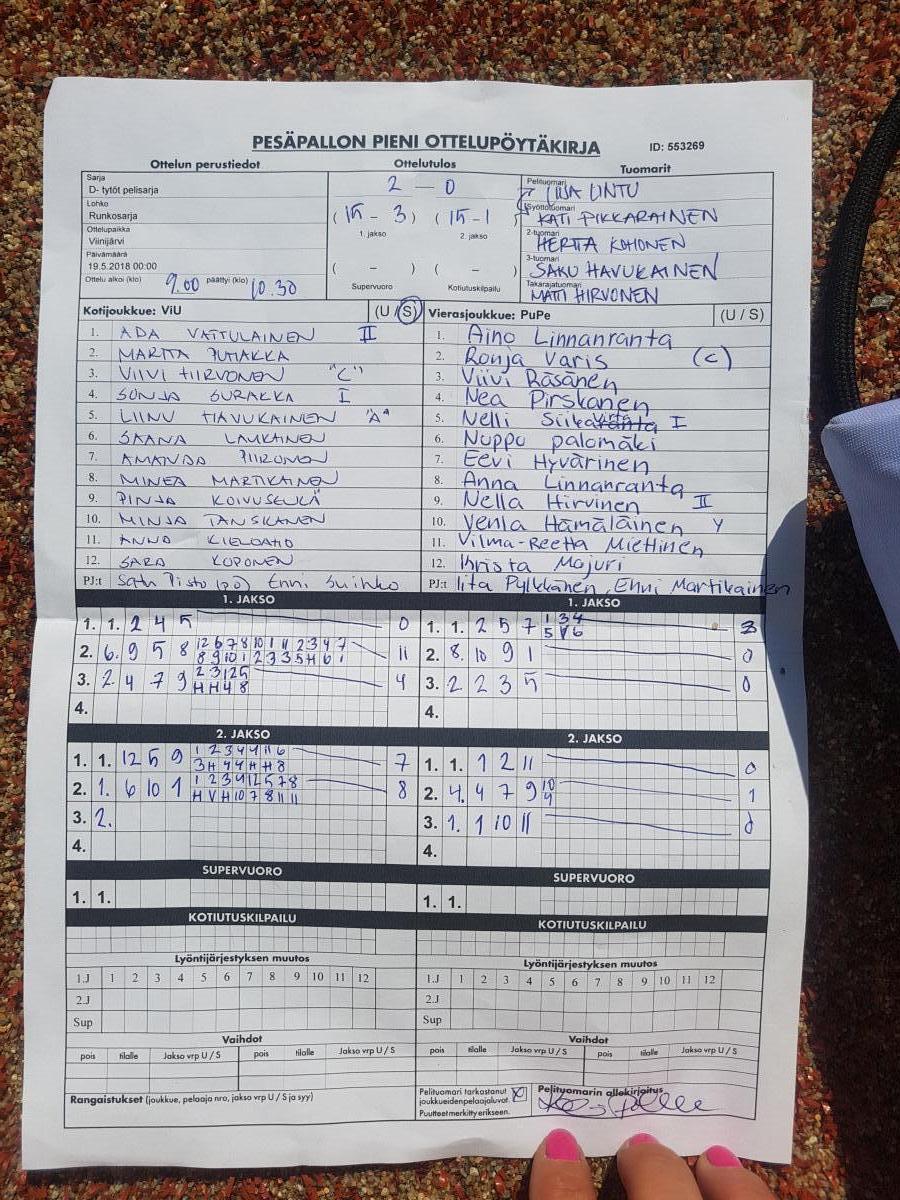 PESÄPALLON PIENI OTTELUPÖYTÄKIRJA
ID: 553269
Ottelun perustiedot
Sarja
D- tytöt pelisarja
Lohko
Runkosarja
Ottelupaikka
Viinijärvi
Päivämäärä
19.5.2018 00:00
Ottelu alkoi (klo) 9.00 päättyi (klo) 10.30
Ottelutulos
2 - 0
(15 - 3) (15 - 1)
1. jakso 2. jakso
( - ) ( - )
Supervuoro Kotiutuskilpailu
Tuomarit
Pelituomari
LIISA LINTU
Syöttötuomari
KATI PIKKARAINEN
2-tuomari
HERTTA KOHONEN
3-tuomari
SAKU HAVUKAINEN
Takarajatuomari
MATTI HIRVONEN
Kotijoukkue: ViU (U / S)
1. ADA VATTULAINEN II
2. MARTTA PUHAKKA
3. VIIVI HIRVONEN "C"
4. SONJA SURAKKA I
5. LIINU HAVUKAINEN "A"
6. SAANA LAUKKAINEN
7. AMANDA PIIRONEN
8. MINEA MARTIKAINEN
9. PINJA KOIVUSELKÄ
10. MINJA TANSKANEN
11. ANNA KIELOAHO
12. SARA KOPONEN
PJ:t Satu Pisto (pö) Enni Suihko
Vierasjoukkue: PuPe (U / S)
1. Aino Linnanranta
2. Ronja Varis (C)
3. Viivi Räsänen
4. Nea Pirskanen
5. Nelli Siikavirta I
6. Noppu palomäki
7. Eevi Hyvärinen
8. Anna Linnanranta
9. Nella Hirvinen II
10. Venla Hämäläinen Y
11. Vilma-Reetta Miettinen
12. Krista Majuri
PJ:t Iita Pylkkänen, Enni Martikainen
1. JAKSO
1. 1. 2 4 5 0
2. 6. 9 5 8 12 6 7 8 10 1 11 2 3 4 7 11
8 9 10 1 2 3 3 5 H 6 1
3. 2. 4 7 9 2 3 12 5 4
H H 4 8
4.
2. JAKSO
1. 1. 12 5 9 1 2 3 4 4 11 6 7
3 H 4 4 H H 8
2. 1. 6 10 1 1 2 3 4 12 5 7 8 8
H V H 10 7 8 11 11
3. 2.
4.
SUPERVUORO
1. 1.
KOTIUTUSKILPAILU
Lyöntijärjestyksen muutos
1.J 1 2 3 4 5 6 7 8 9 10 11 12
2.J
Sup
Vaihdot
pois tilalle Jakso vrp U / S pois tilalle Jakso vrp U / S
Rangaistukset (joukkue, pelaaja nro, jakso vrp U / S ja syy)
1. JAKSO
1. 1. 2 5 7 1 3 4 3
5 V 6
2. 8. 10 9 1 0
3. 2 2 3 5 0
4.
2. JAKSO
1. 1. 1 2 11 0
2. 4. 4 7 9 10 1
4
3. 1. 1 10 11 0
4.
SUPERVUORO
1. 1.
KOTIUTUSKILPAILU
Lyöntijärjestyksen muutos
1.J 1 2 3 4 5 6 7 8 9 10 11 12
2.J
Sup
Vaihdot
pois tilalle Jakso vrp U / S pois tilalle Jakso vrp U / S
Pelituomari tarkastanut
joukkueidenpelaajaluvat. X
Puutteet merkitty erikseen.
Pelituomarin allekirjoitus